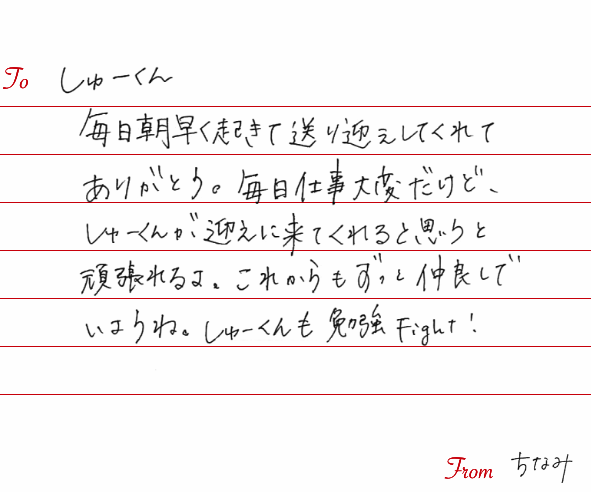 To しゅーくん
毎日朝早く起きて送り迎えしてくれて
ありがとう。毎日仕事大変だけど、
しゅーくんが迎えに来てくれると思うと
頑張れるよ。これからもずっと仲良しで
いようね。しゅーくんも勉強Fight!
From ちなみ